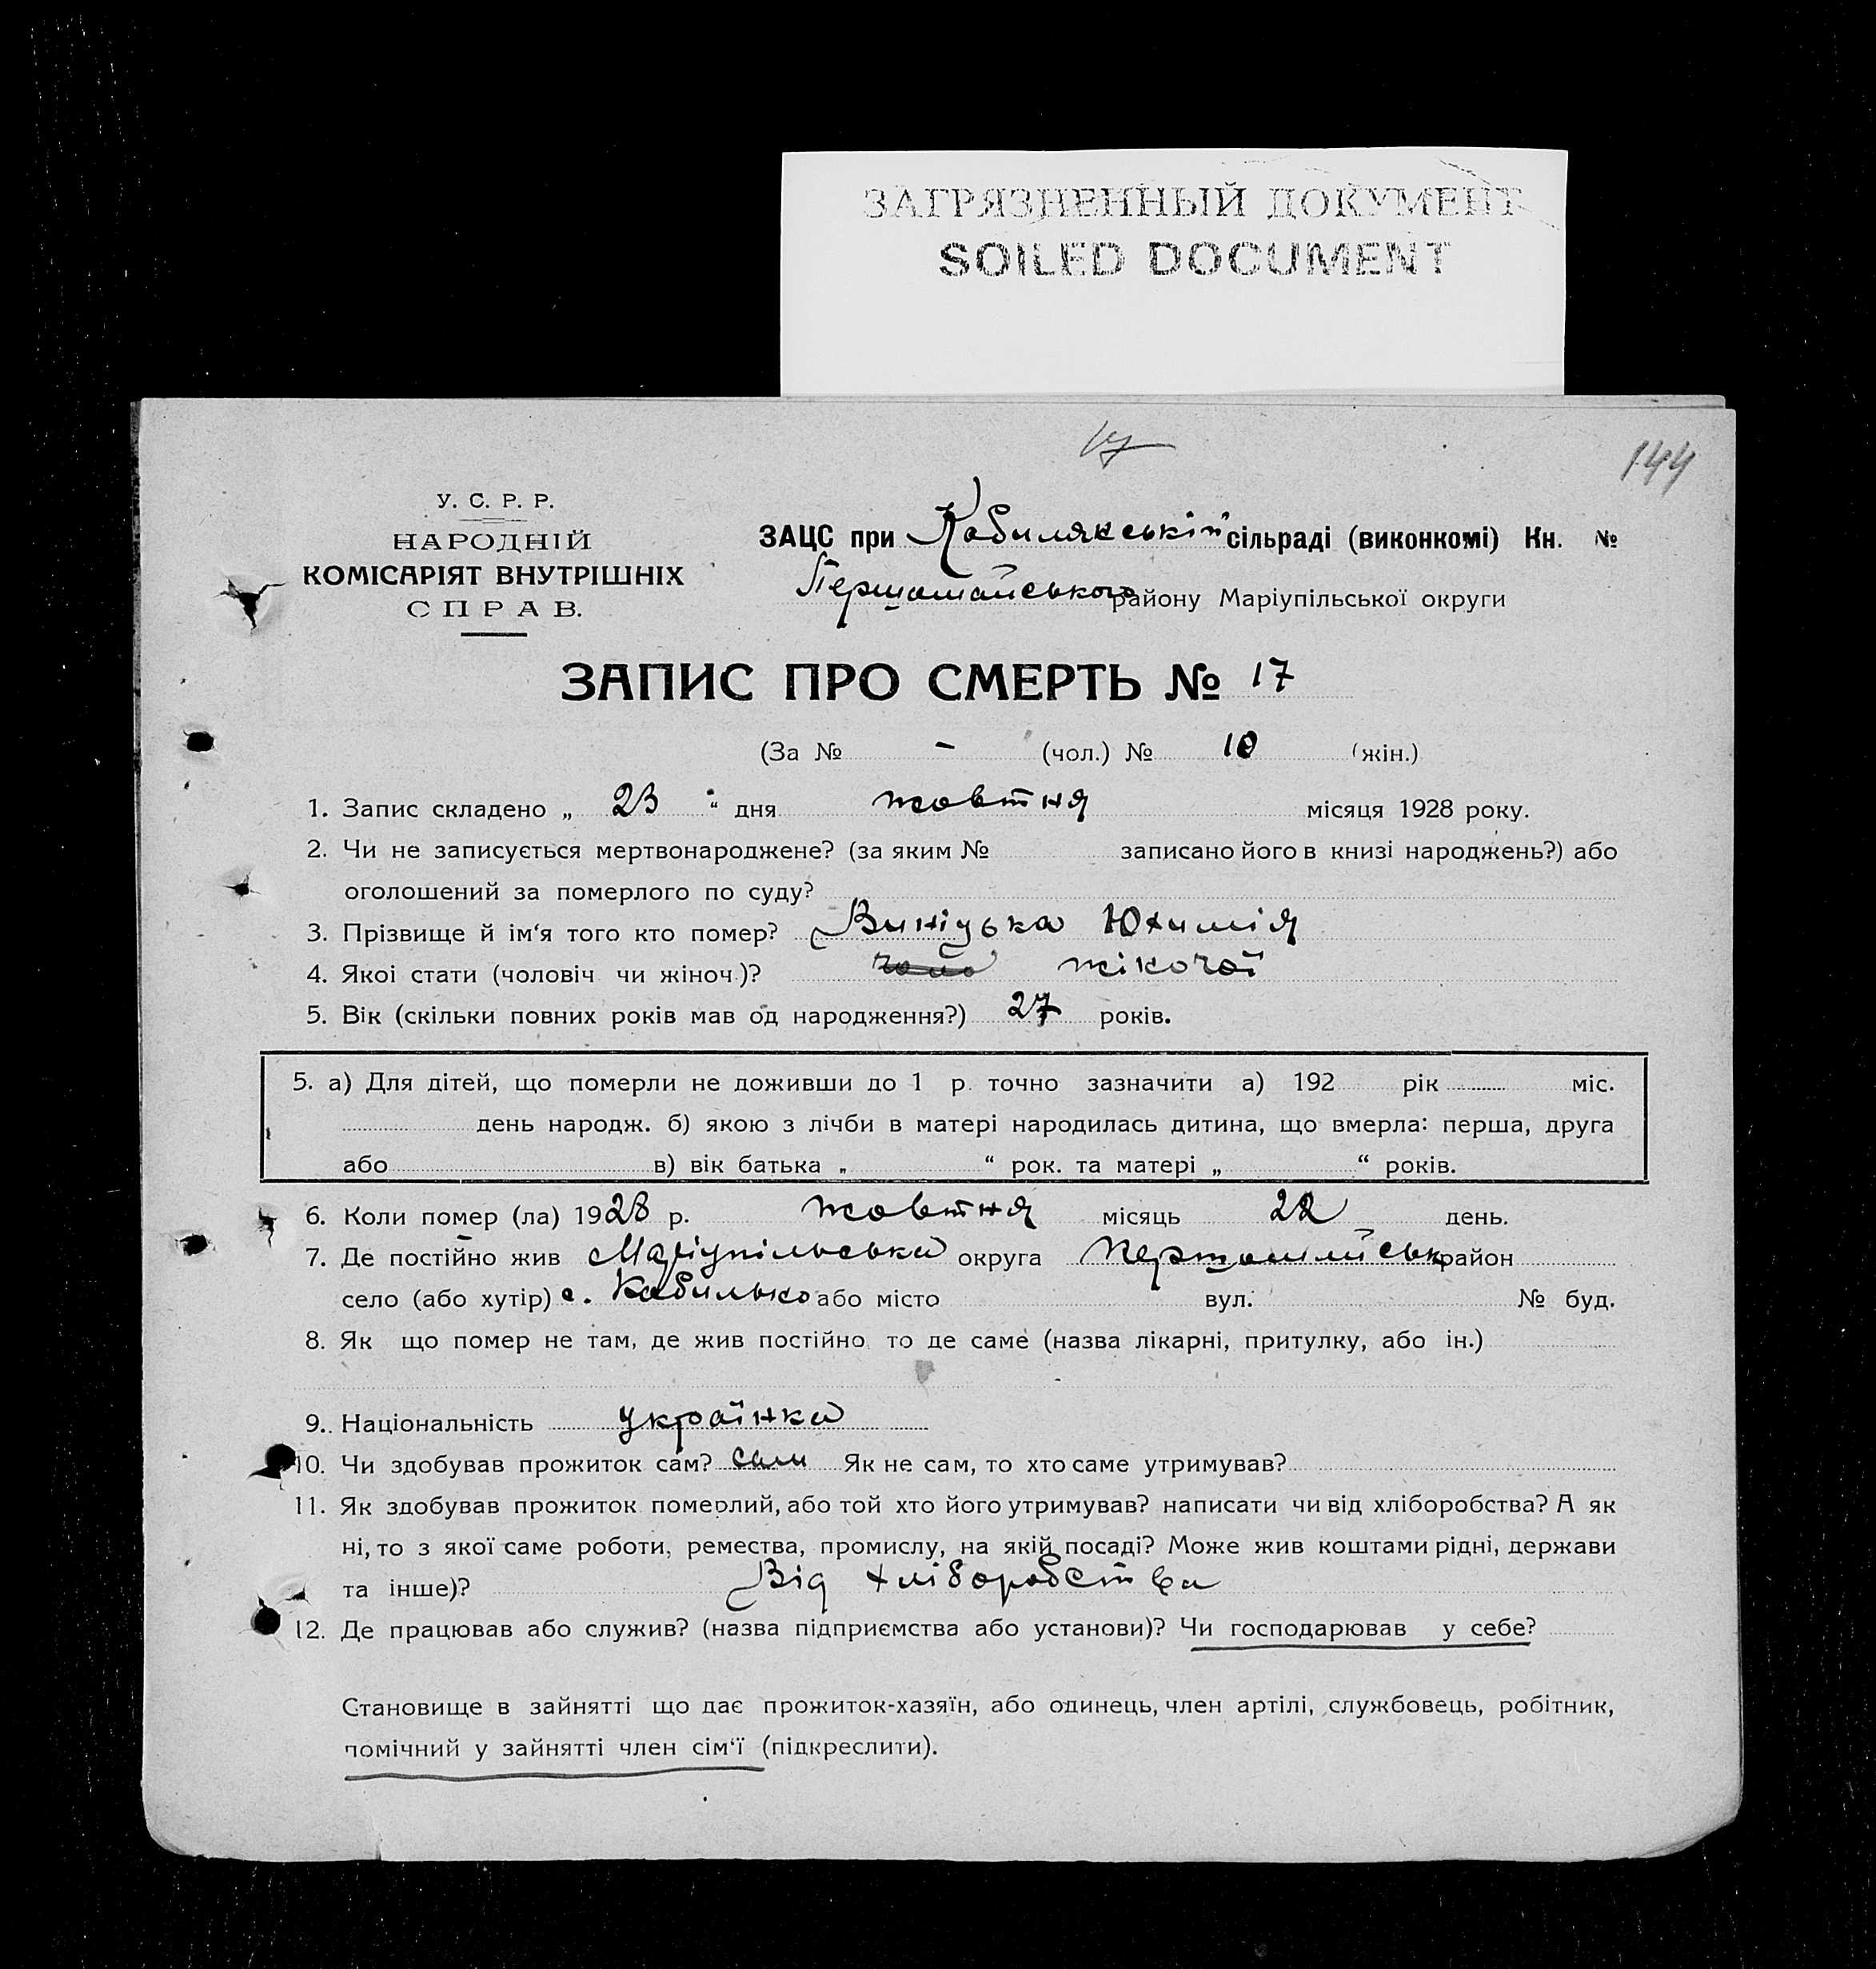 ЗАГРЯЗНЕННЫЙ ДОКУМЕНТ
SOILED DOCUMENT
17
144
У. С. Р. Р.
НАРОДНІЙ
КОМІСАРІЯТ ВНУТРІШНІХ
СПРАВ.
ЗАЦС при Кобилякській сільраді (виконкомі) Кн. №
Першомайського району Маріупільської округи
ЗАПИС ПРО СМЕРТЬ № 17
(За № – (чол.) № 10 (жін.)
1. Запис складено „ 23 “ дня жовтня місяця 1928 року.
2. Чи не записується мертвонароджене? (за яким № записано його в книзі народжень?) або
оголошений за померлого по суду?
3. Прізвище й ім‘я того кто помер? Виніцька Юхимія
4. Якоі стати (чоловіч чи жіноч.)? жіночої
5. Вік (скільки повних років мав од народження?) 27 років.
5. а) Для дітей, що померли не доживши до 1 р. точно зазначити а) 192 рік міс.
день народж. б) якою з лічби в матері народилась дитина, що вмерла: перша, друга
або в) вік батька „ “ рок. та матері „ “ років.
6. Коли помер (ла) 1928 р. жовтня місяць 22 день.
7. Де постійно жив Маріупільська округа Першомайськ район
село (або хутір) с. або місто вул. № буд.
8. Як що помер не там, де жив постійно то де саме (назва лікарні, притулку, або ін.)
9. Національність українка
10. Чи здобував прожиток сам? сам Як не сам, то хто саме утримував?
11. Як здобував прожиток померлий, або той хто його утримував? написати чи від хліборобства? А як
ні, то з якої саме роботи, ремества, промислу, на якій посаді? Може жив коштами рідні, держави
та інше)? Від хліборобства
12. Де працював або служив? (назва підприємства або установи)? Чи господарював у себе?
Становище в зайнятті що дає прожиток-хазяїн, або одинець, член артілі, службовець, робітник,
помічний у зайнятті член сім‘ї (підкреслити).